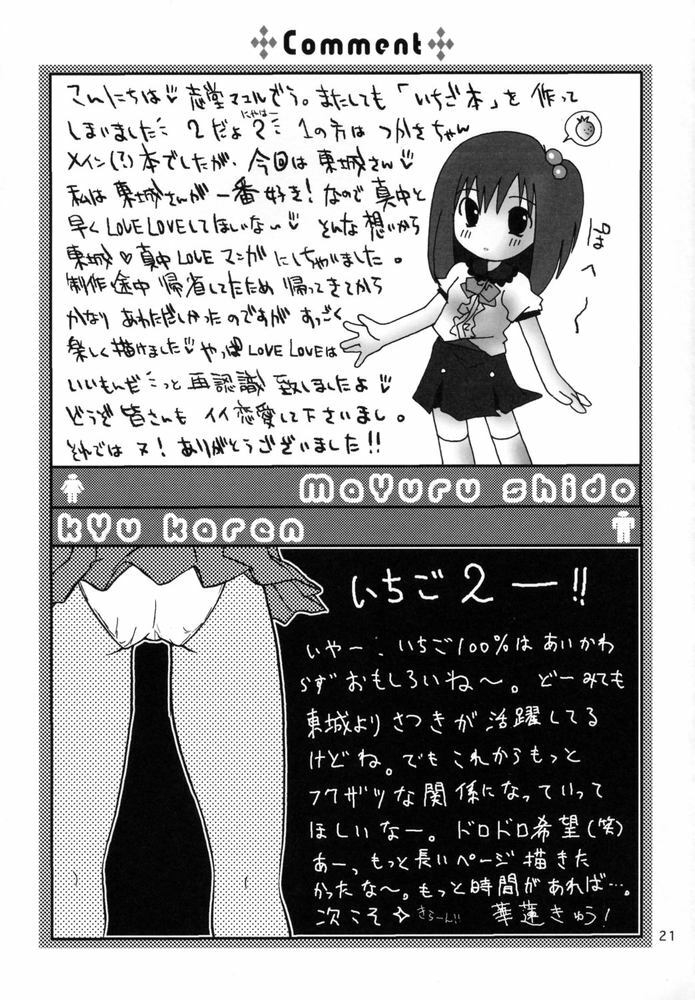 Comment
こんにちは♡ 志堂マユルでぅ。またしても「いちご本」を作って
しまいました 2だよ 2 1の方は つかさちゃん
にゃは〜
メイン(?)本でしたが、今回は東城さん♡
私は東城さんが一番好き!なので真中と
早くLOVE LOVEしてほしい♡ そんな想いから
東城♡真中LOVEマンガにしちゃいました。
制作途中帰省してたため帰ってきてから
かなりあわただしかったのですがすっごく
楽しく描けました♡やっぱLOVE LOVEは
いいもんだ っと再認識致しましたよ♡
どうぞ皆さんもイイ恋愛して下さいまし。
それではヌ!ありがとうございました!!
Mayuru shido
kyu karen
いちご2ー!!
いやー、いちご100%はあいかわ
らずおもしろいね〜。どーみても
東城よりさつきが活躍してる
けどね。でもこれからもっと
フクザツな関係になっていって
ほしいなー。ドロドロ希望(笑)
あーっもっと長いページ描きた
かったな〜。もっと時間があれば…。
次こそ✧ きらーん!! 華蓮きゅう!
21